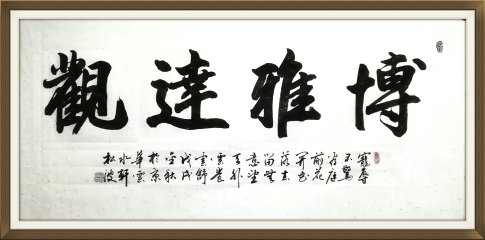 博雅達觀
寵辱
不驚
看庭
前花
開花
落去
留無
意望
天外
雲卷
雲舒
戊戌
金秋
於京
華雲
水軒
松波